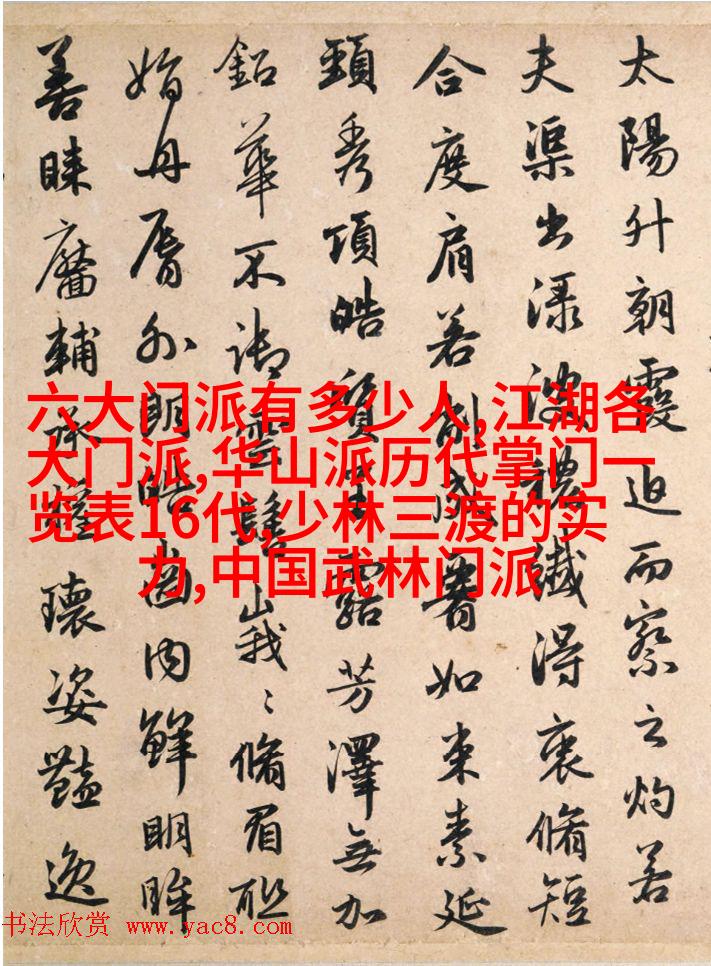 太陽升朝霞迫而察之灼若
夫渠出渌波穠纖得衷脩短
合度肩若削成如束素延
頸秀項皓質呈露芳澤無加
鈆華不御雲髻峩〻脩眉聯
娟丹脣外朗皓齒内鮮明眸
善睞靨輔承權瓌姿豔逸
六大门派有多少人,江湖各
大门派,华山派历代掌门一
览表16代,少林三渡的实
力,中国武林门派
书法欣赏 www.yac8.com